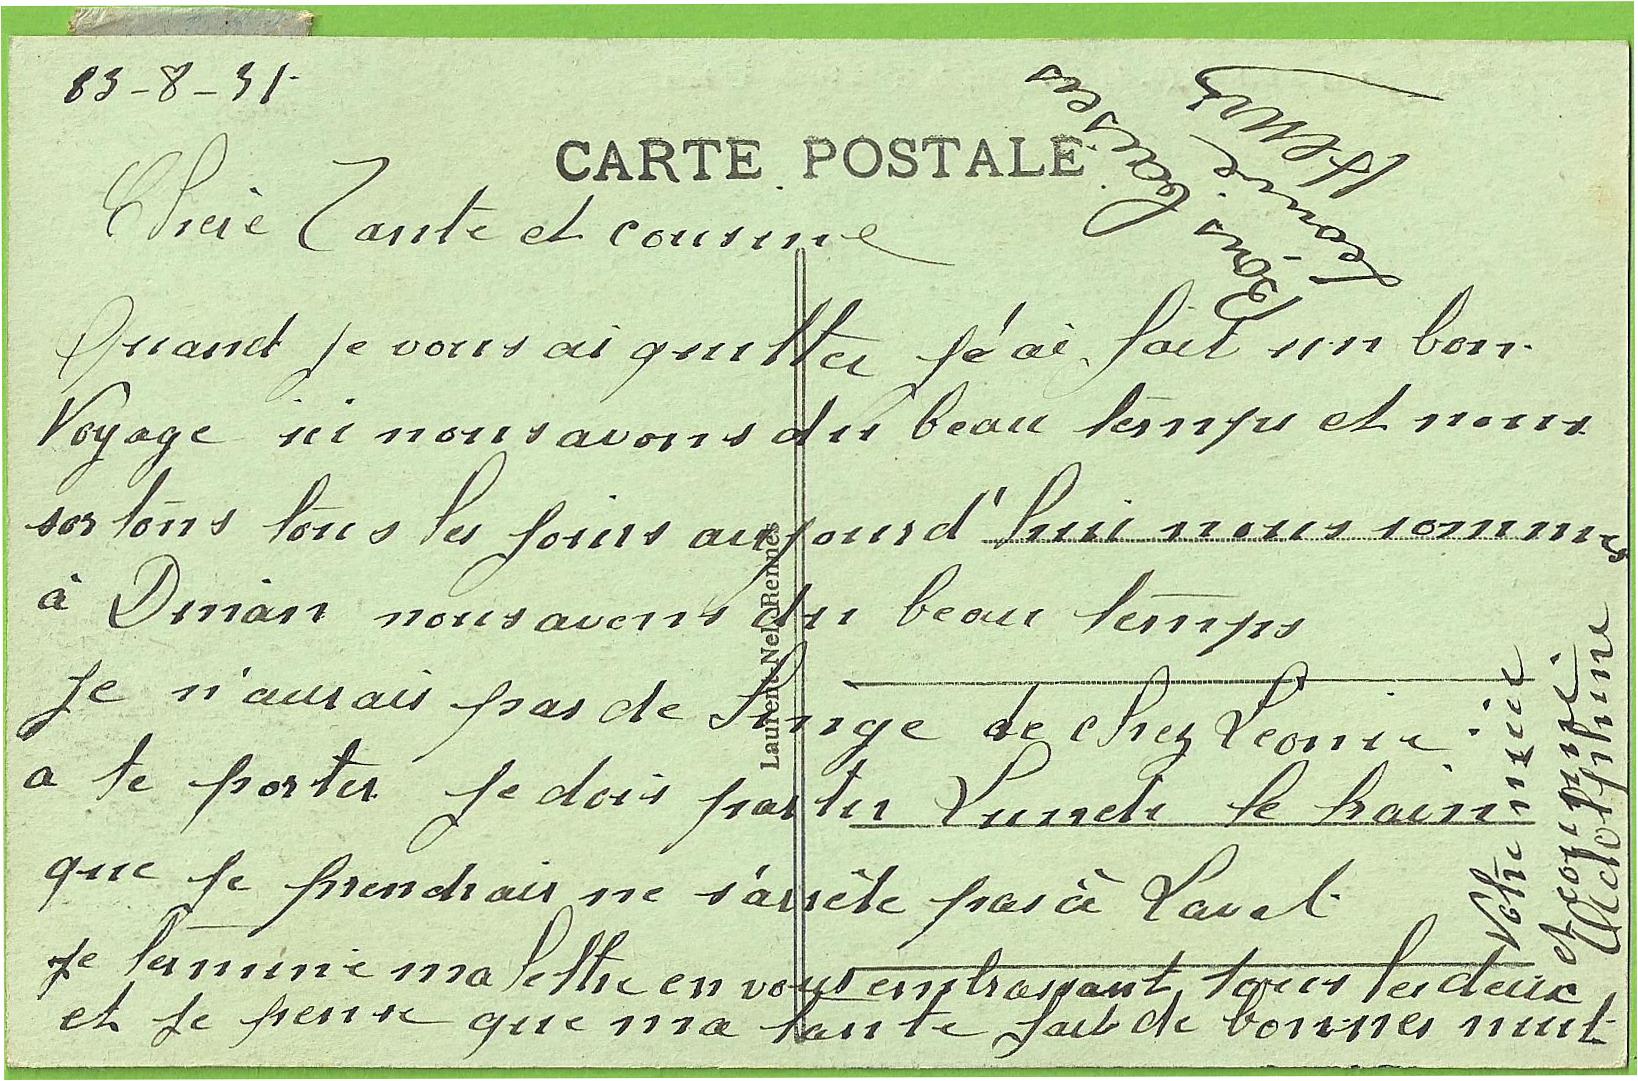 83-8-31
CARTE POSTALE
Chère Tante et cousine
Quand je vous ai quitter jé'ai fait un bon
Voyage ici nous avons du beau temps et nous
sortons tous les jours aujourd'hui nous sommes
à Dinan nous avons du beau temps
je n'aurais pas de linge de chez Leonie
a te porter je dois partir Lundi le train
que je prendrais ne s'arrête pas à Laval
je termine ma lettre en vous embrassant tous les deux
et je pense que ma tante fait de bonnes nuit
Votre nièce
et cousine
Adolphine
Bons baisers
Léonie
Henri
Laurent-Nel, Rennes